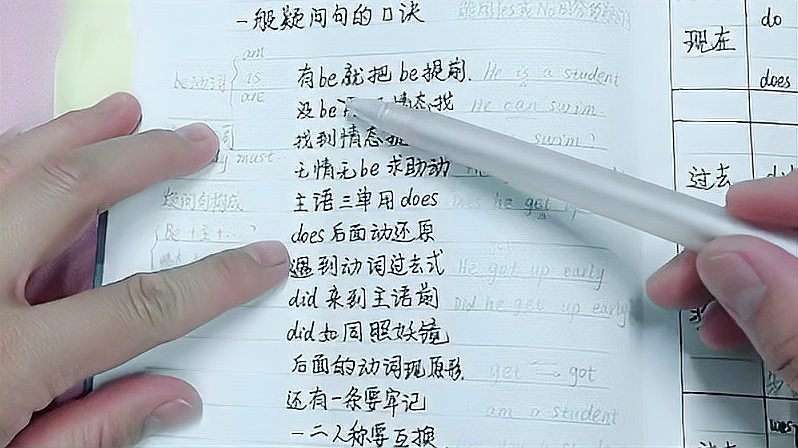 一般疑问句的口诀
有be就把be提前. He is a student
没be 情态找 He can swim
找到情态 swim?
无情无be 求助动
主语三单用does
does后面动还原
遇到动词过去式 He got up early
did来到主语前 Did he get up early
did如同照妖镜
后面的动词现原形. get → got
还有一条要牢记 am a student
一二人称要互换
be动词 am is are
must
疑问句构成
Be+主+...
现在 do
does
过去